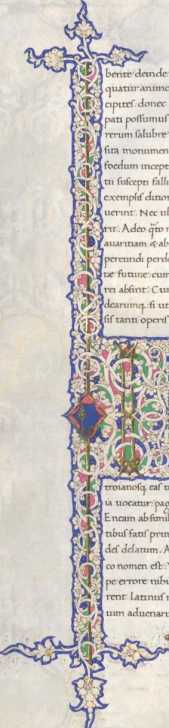 bente deinde
quatur animo
cipites donec
pati possumus
rerum salubre
sita monumen
foedum incepe
tu suscepti fall
exempla ditior
uerint: Nec ul
rit: Adeo qto
auaritiam &
pereundi perd
tæ future: cum
rei absint: Cum
dearumq; si ut
sis tanti operis
troianoq eas
ia uocatur: pag
Eneam ab simili
tibus fatis
des delatum. A
co nomen est:
pe errore nihil
rent Latinus
uim aduenar